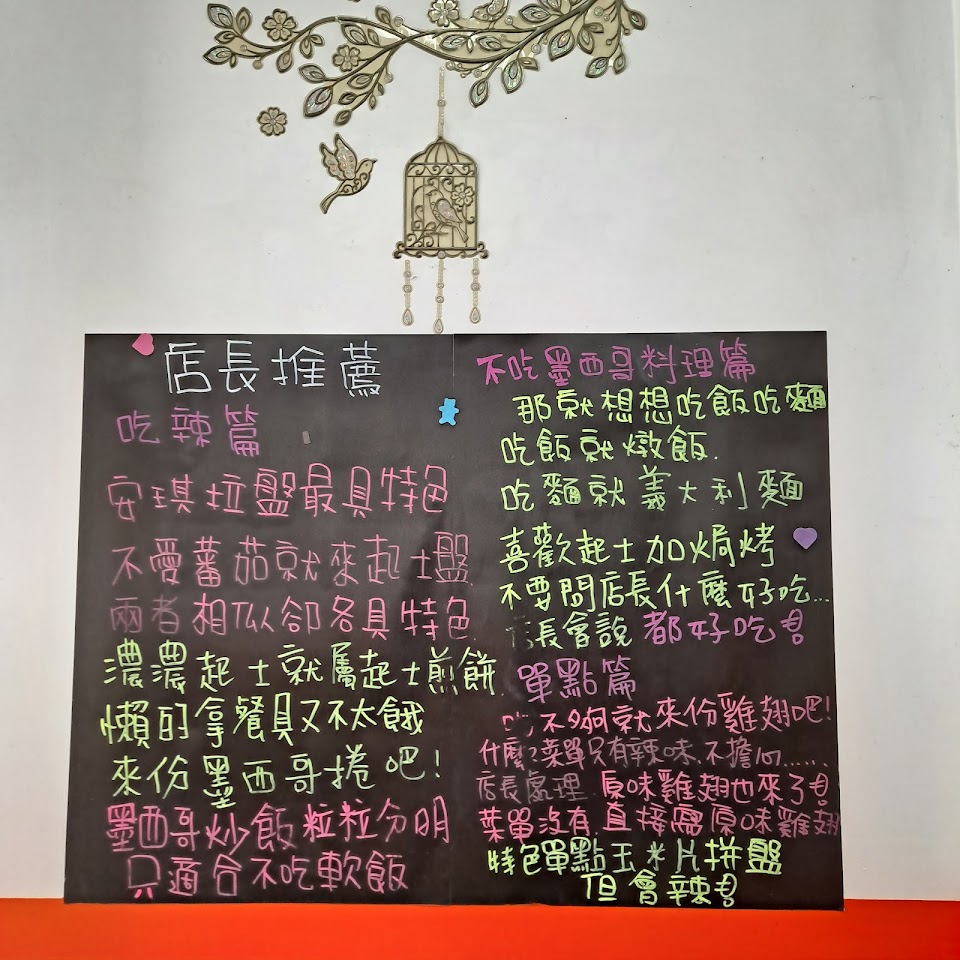 店長推薦
吃辣篇
安琪拉盤最具特色
不愛蕃茄就來起士盤
兩者相似卻各具特色
濃濃起士就屬起士煎餅
懶的拿餐具又不太餓
來份墨西哥捲吧!
墨西哥炒飯粒粒分明
只適合不吃軟飯
不吃墨西哥料理篇
那就想想吃飯吃麵
吃飯就燉飯.
吃麵就義大利麵
喜歡起士加焗烤
不要問店長什麼好吃...
店長會說 都好吃
單點篇
吃不夠就來份雞翅吧!
什麼?菜單只有辣味.不擔心......
店長處理 原味雞翅也來了
菜單沒有.直接 原味雞翅
特色單點玉米片拼盤
但會辣